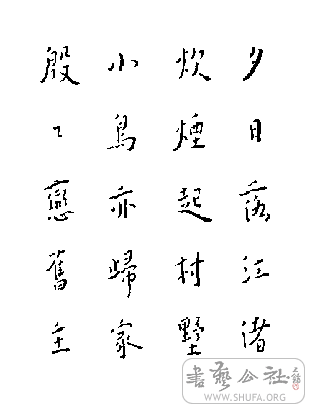 夕日落江渚
炊煙起村墅
小鳥亦歸家
殷〻戀舊主
書藝公社
WWW.SHUFA.ORG